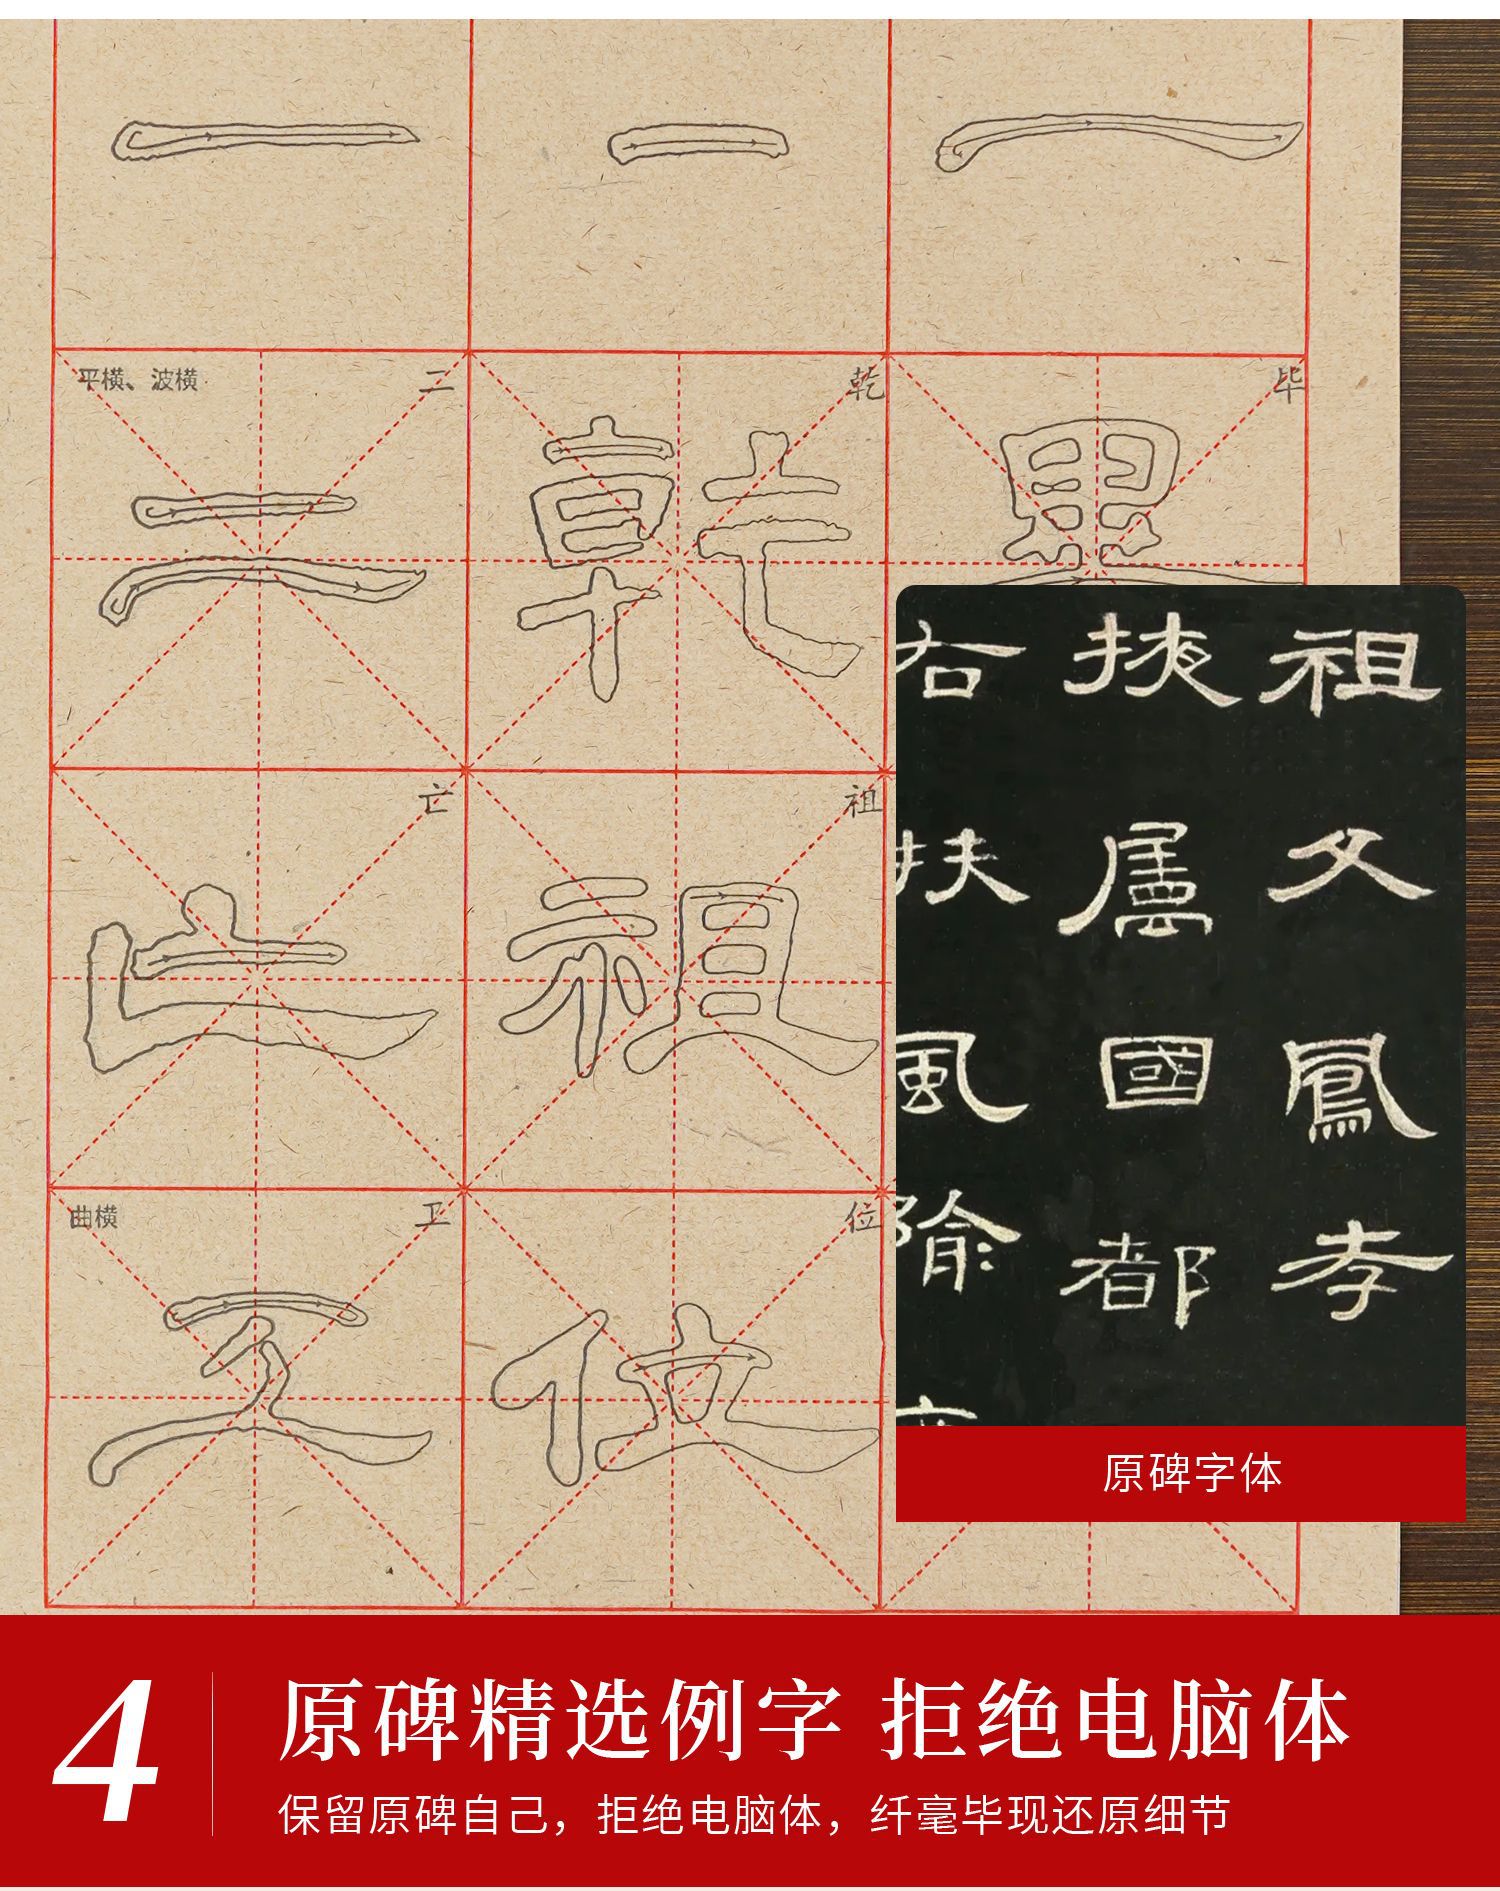 一 一 一
平横、波横 二 乾 毕
二 乾 畢
亡 祖
亡 祖
曲横 工 位
工 位
祖父鳳孝
挟 國都
右扶風隃
原碑字体
4
原碑精选例字 拒绝电脑体
保留原碑自己，拒绝电脑体，纤毫毕现还原细节